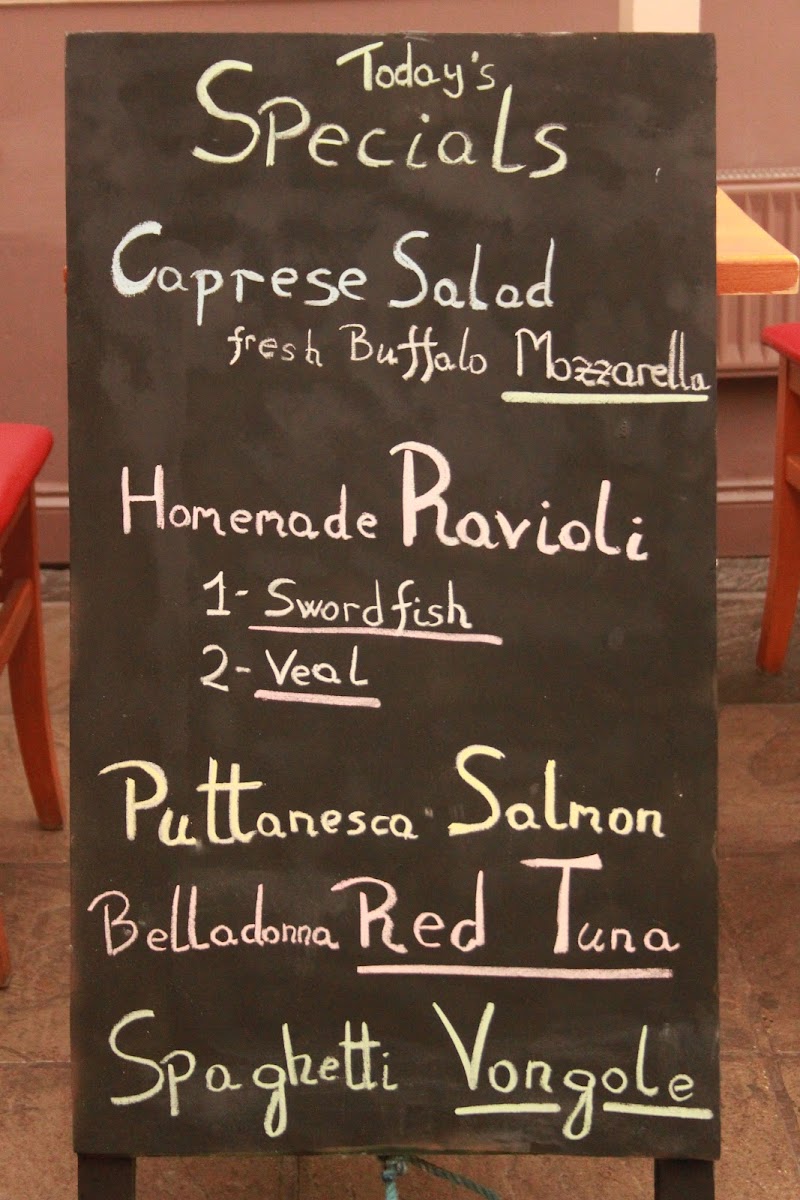 Today's
Specials
Caprese Salad
fresh Buffalo Mozzarella
Homemade Ravioli
1- Swordfish
2- Veal
Puttanesca Salmon
Belladonna Red Tuna
Spaghetti Vongole